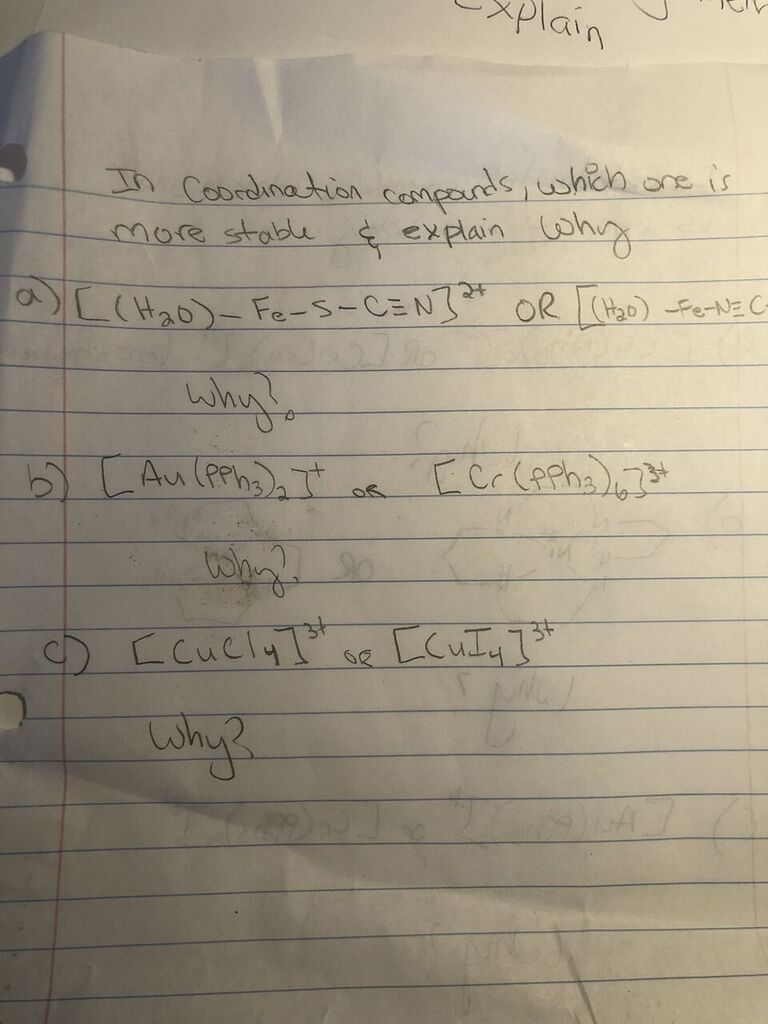 Explain
In Coordination compounds, which one is
more stable & explain Why
a) [(H₂O)–Fe–S–C≡N]²⁺ OR [(H₂O) –Fe–N≡C
Why?
b) [Au(PPh₃)₂]⁺ OR [Cr(PPh₃)₆]³⁺
Why?
c) [CuCl₄]³⁺ OR [CuI₄]³⁺
Why?